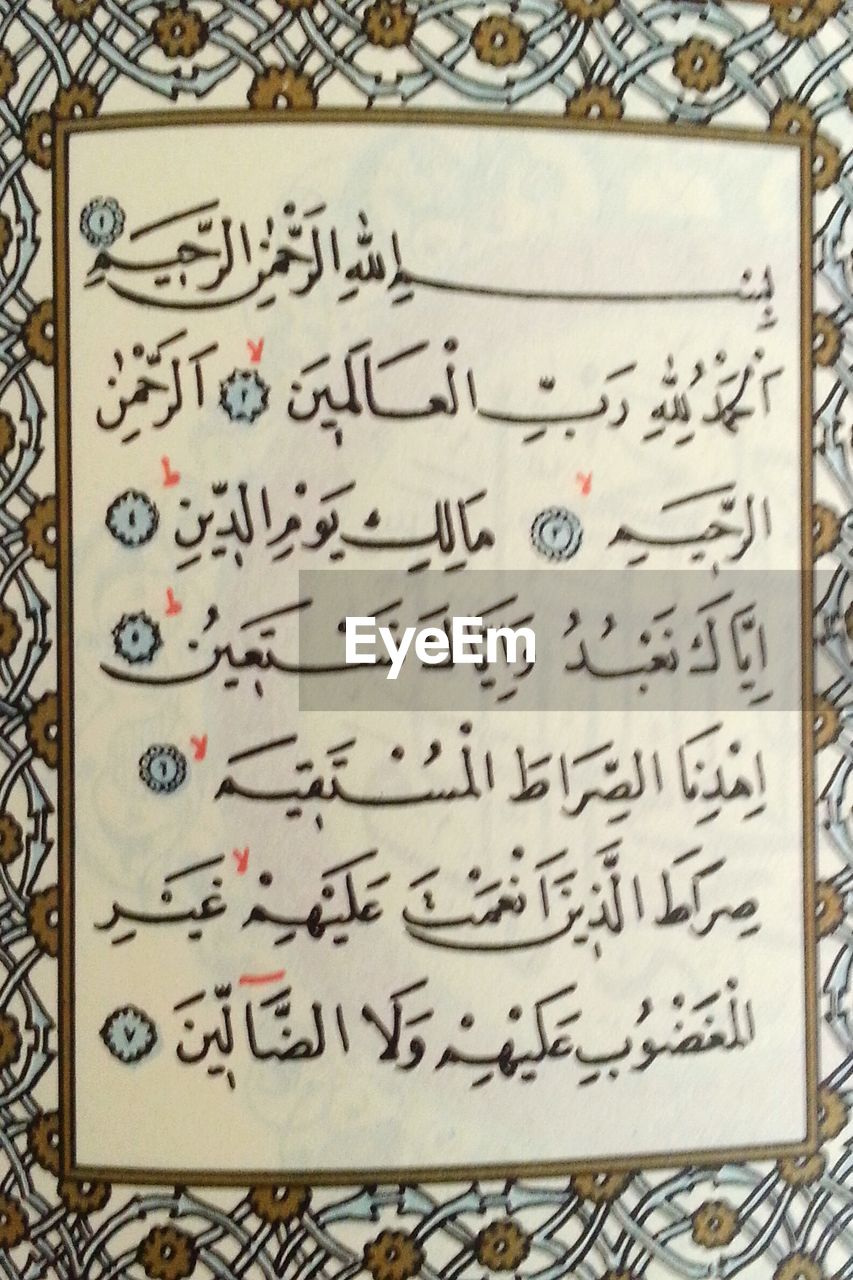 بِسْـــمِ اللّٰهِ الرَّحْمٰنِ الرَّحٖيمِ ١
اَلْحَمْدُ لِلّٰهِ رَبِّ الْعَالَمٖينَ ٢ لا اَلرَّحْمٰنِ
الرَّحٖيمِ ٣ لا مَالِكِ يَوْمِ الدّٖينِ ٤ ط
اِيَّاكَ نَعْبُدُ وَاِيَّاكَ نَسْتَعٖينُ ٥ ط
EyeEm
اِهْدِنَا الصِّرَاطَ الْمُسْتَقٖيمَ ٦ لا
صِرَاطَ الَّذٖينَ اَنْعَمْتَ عَلَيْهِمْ لا غَيْرِ
الْمَغْضُوبِ عَلَيْهِمْ وَلَا الضَّٓالّٖينَ ٧